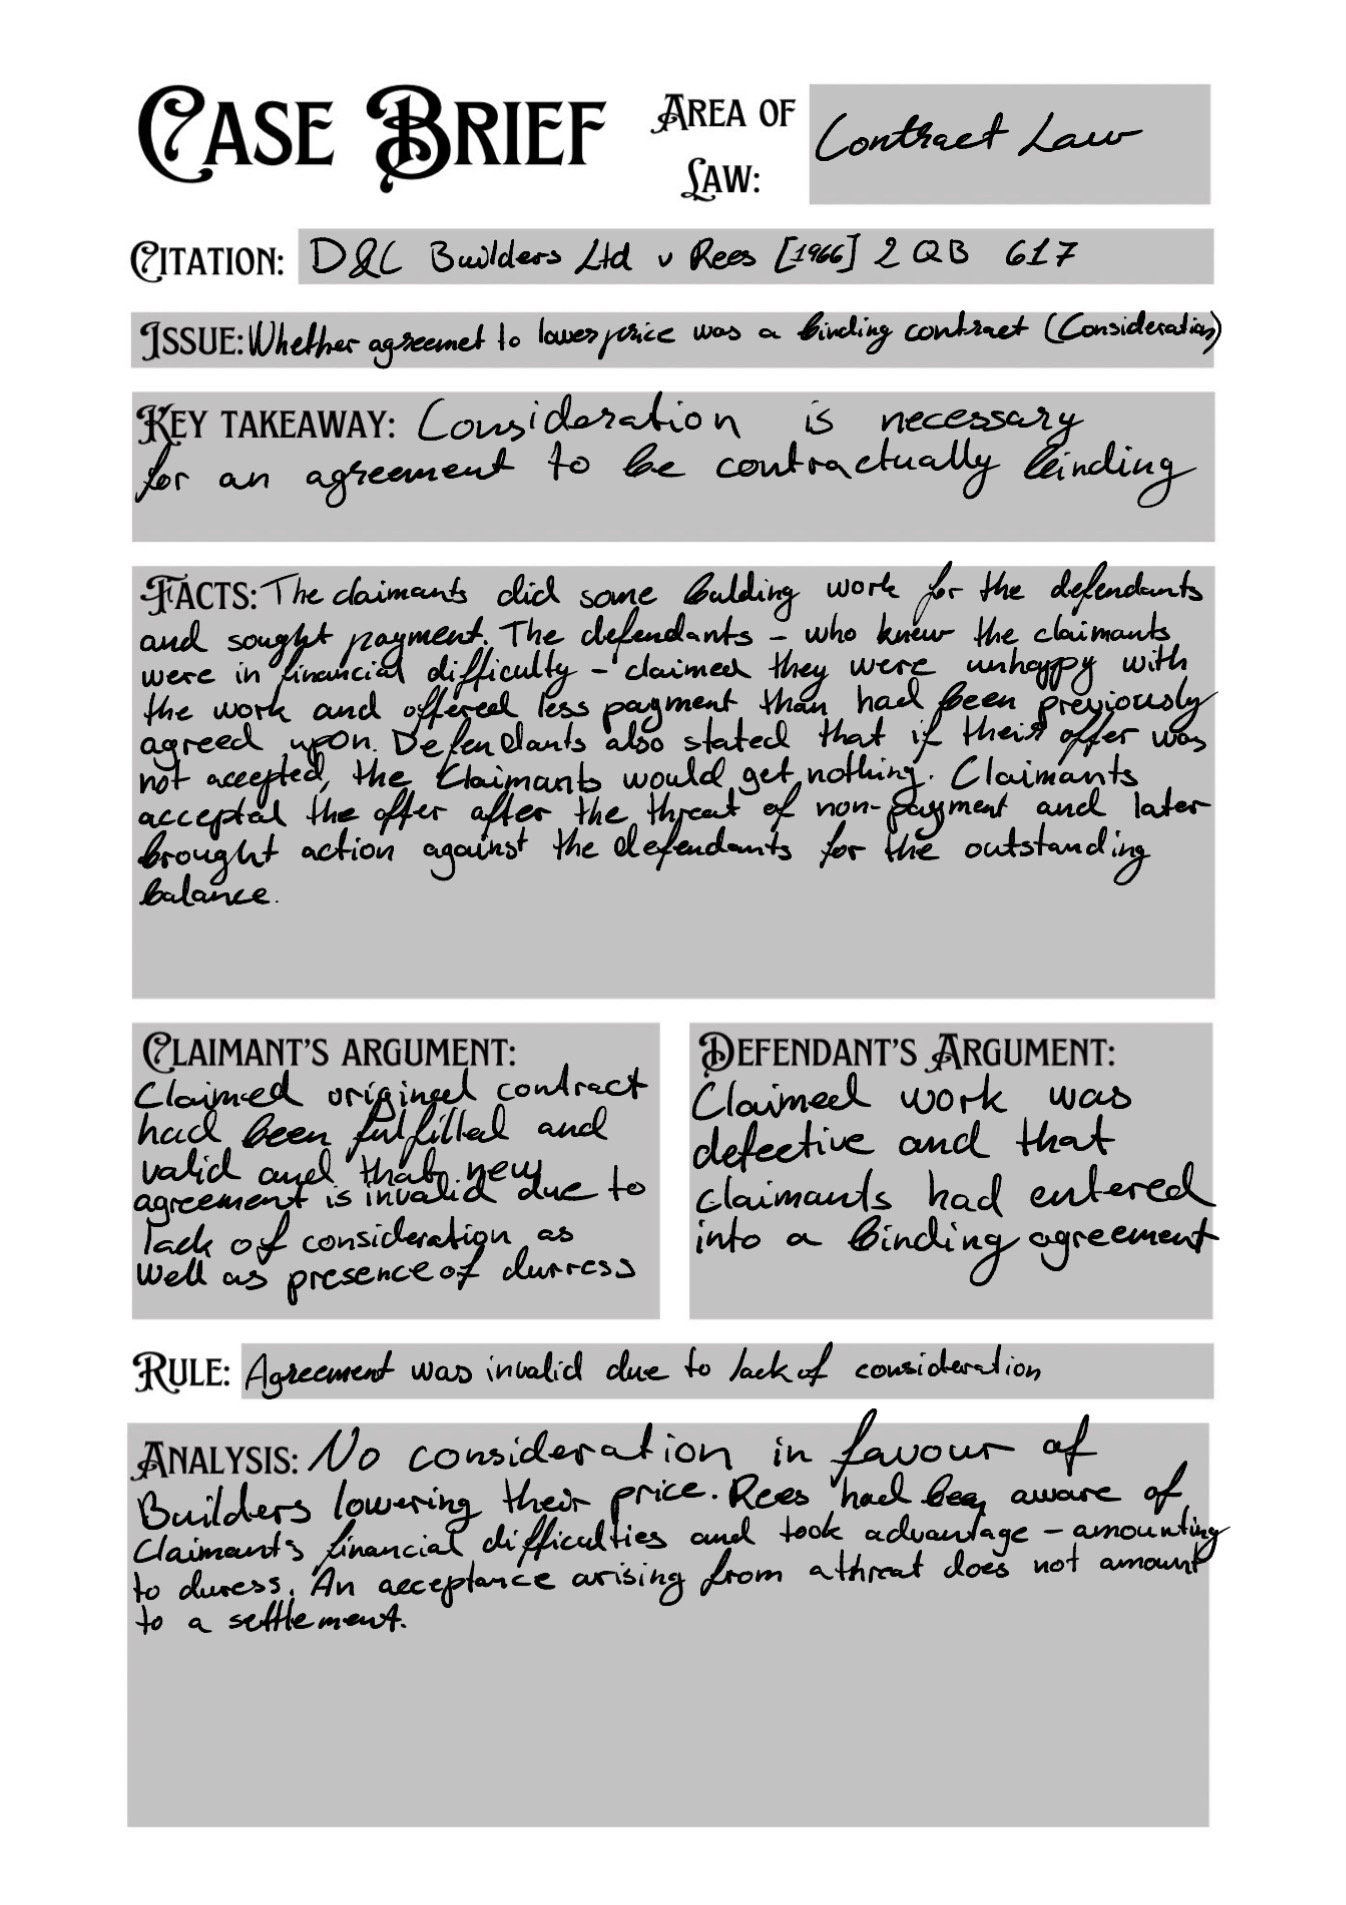 CASE BRIEF
AREA OF LAW: Contract Law
CITATION: D&C Builders Ltd v Rees [1966] 2 QB 617
ISSUE: Whether agreemet to lower price was a binding contract (Consideration)
KEY TAKEAWAY: Consideration is necessary
for an agreement to be contractually binding
FACTS: The claimants did some bulding work for the defendants
and sought payment. The defendants - who knew the claimants
were in financial difficulty - claimed they were unhappy with
the work and offered less payment than had been previously
agreed upon. Defendants also stated that if their offer was
not accepted, the Claimants would get nothing. Claimants
acceptal the offer after the threat of non-payment and later
brought action against the defendants for the outstanding
balance.
CLAIMANT'S ARGUMENT:
Claimed original contract
had been fulfilled and
valid and that new
agreement is invalid due to
lack of consideration as
well as presence of durress
DEFENDANT'S ARGUMENT:
Claimed work was
defective and that
claimants had entered
into a binding agreement
RULE: Agreement was invalid due to lack of consideration
ANALYSIS: No consideration in favour of
Builders lowering their price. Rees had been aware of
claimants financial difficulties and took advantage - amounting
to duress. An acceptance arising from a threat does not amount
to a settlement.